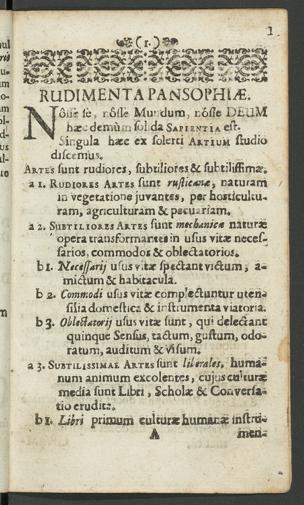 1.
(1.)
RUDIMENTA PANSOPHIÆ.
Nôsse se, nôsse Mundum, nôsse DEUM
hæc demùm solida SAPIENTIA est.
Singula hæc ex solerti ARTIUM studio
discimus.
ARTES sunt rudiores, subtiliores & subtilissimæ.
a 1. RUDIORES ARTES sunt rusticanæ, naturam
in vegetatione juvantes, per horticultu-
ram, agriculturam & pecuariam.
a 2. SUBTILIORES ARTES sunt mechanicæ naturæ
opera transformantes in usus vitæ neces-
sarios, commodos & oblectatorios.
b 1. Necessarij usus vitæ spectant victum, a-
mictum & habitacula.
b 2. Commodi usus vitæ complectuntur uten-
silia domestica & instrumenta viatoria.
b 3. Oblectatorij usus vitæ sunt, qui delectant
quinque Sensus, tactum, gustum, odo-
ratum, auditum & visum.
a 3. SUBTILISSIMAE ARTES sunt liberales, huma-
num animum excolentes, cujus culturæ
media sunt Libri, Scholæ & Conversa-
tio erudita.
b 1. Libri primum culturæ humanæ instru-
A men-